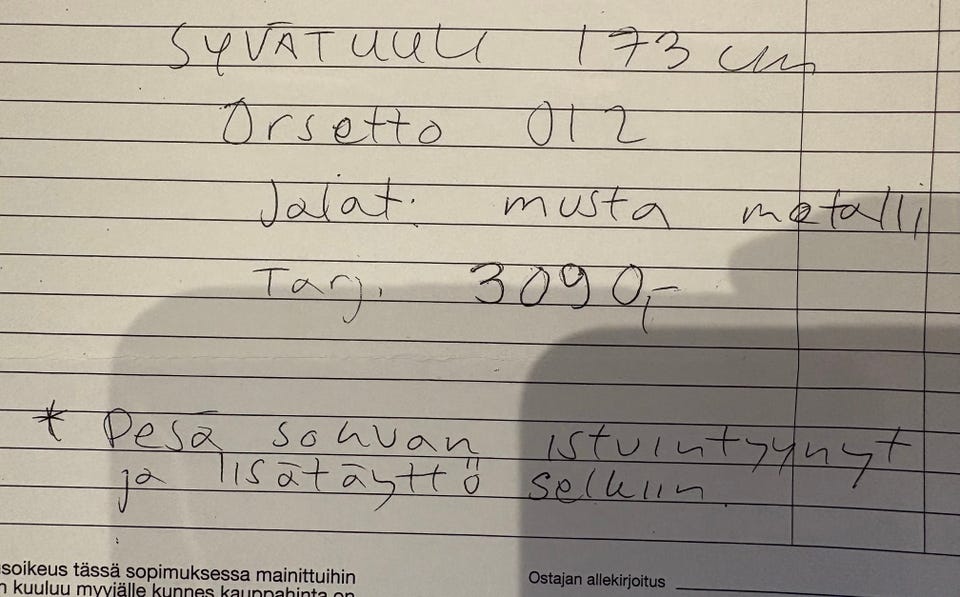 SYVÄTUULI 173 cm
Orsetto 012
Jalat: musta metalli
Tarj. 3090,-
* Pesä sohvan istuintyynyt
ja lisätäyttö selkiin
soikeus tässä sopimuksessa mainittuihin
n kuuluu myyjälle kunnes kauppahinta on
Ostajan allekirjoitus